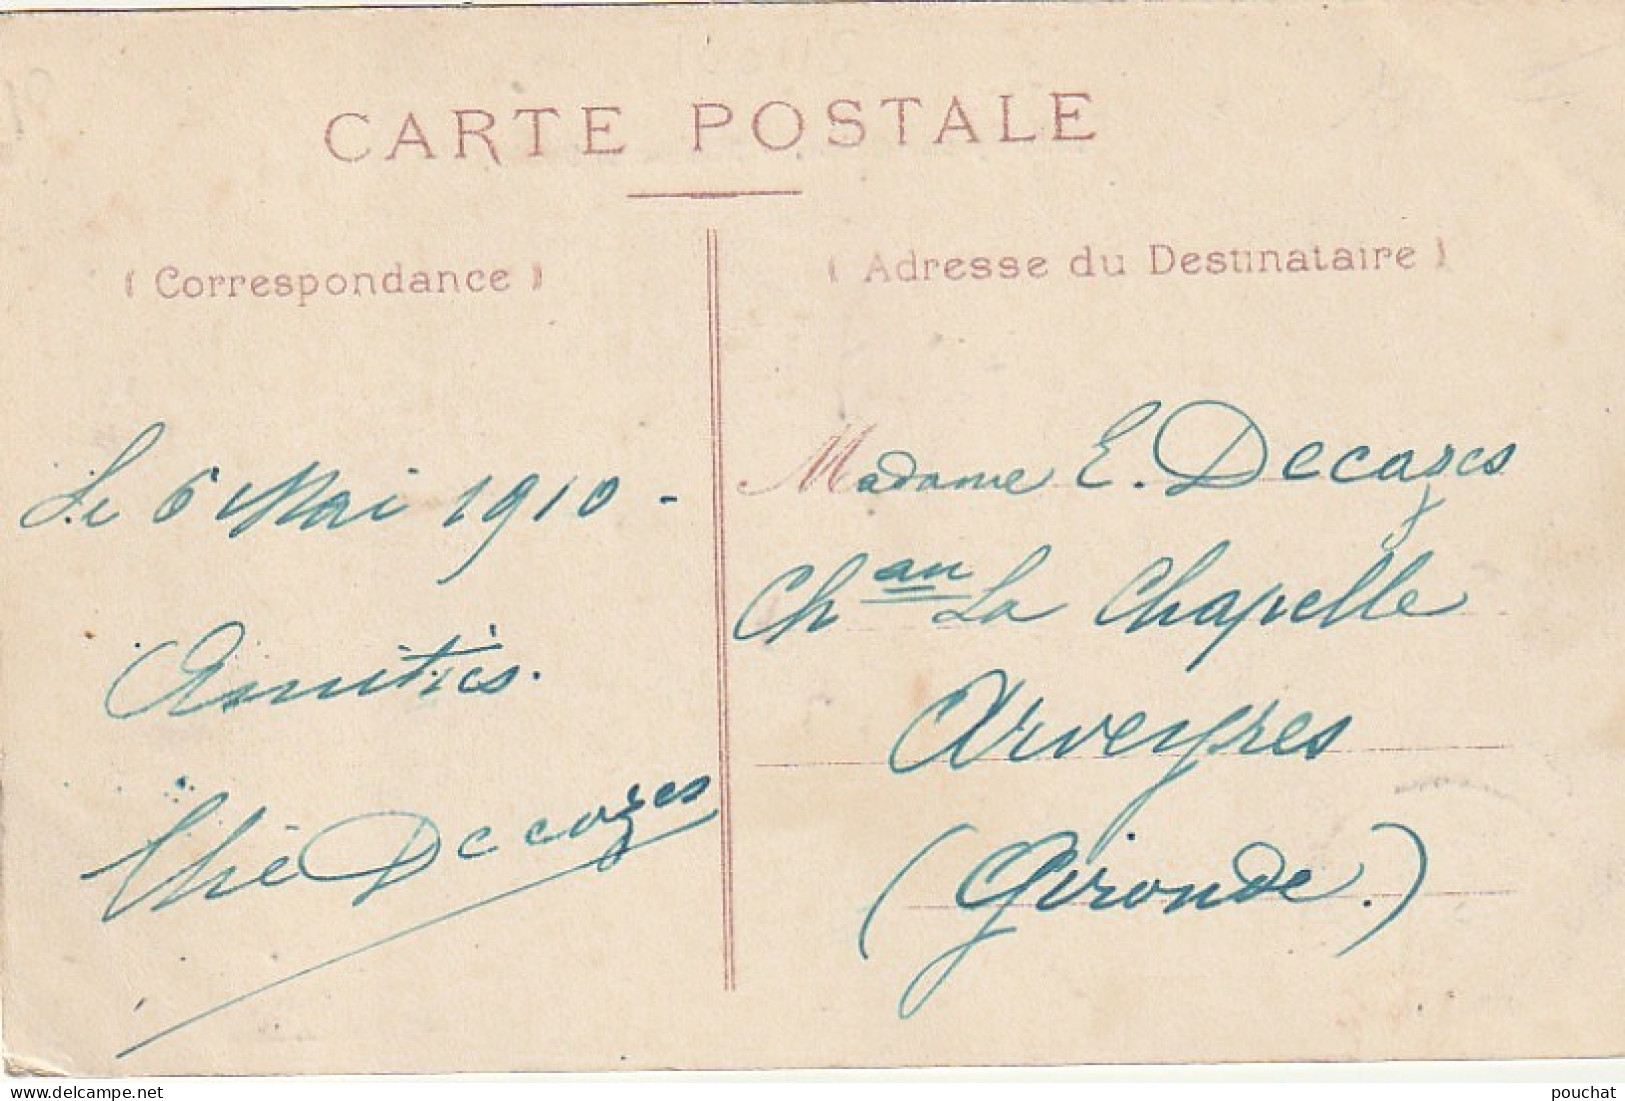 CARTE POSTALE
( Correspondance )
( Adresse du Destinataire )
Le 6 Mai 1910 -
Amitiés.
Decazes
Madame E. Decazes
Ch^au La Chapelle
Arveyres
(Gironde.)
delcampe.net
pouchat